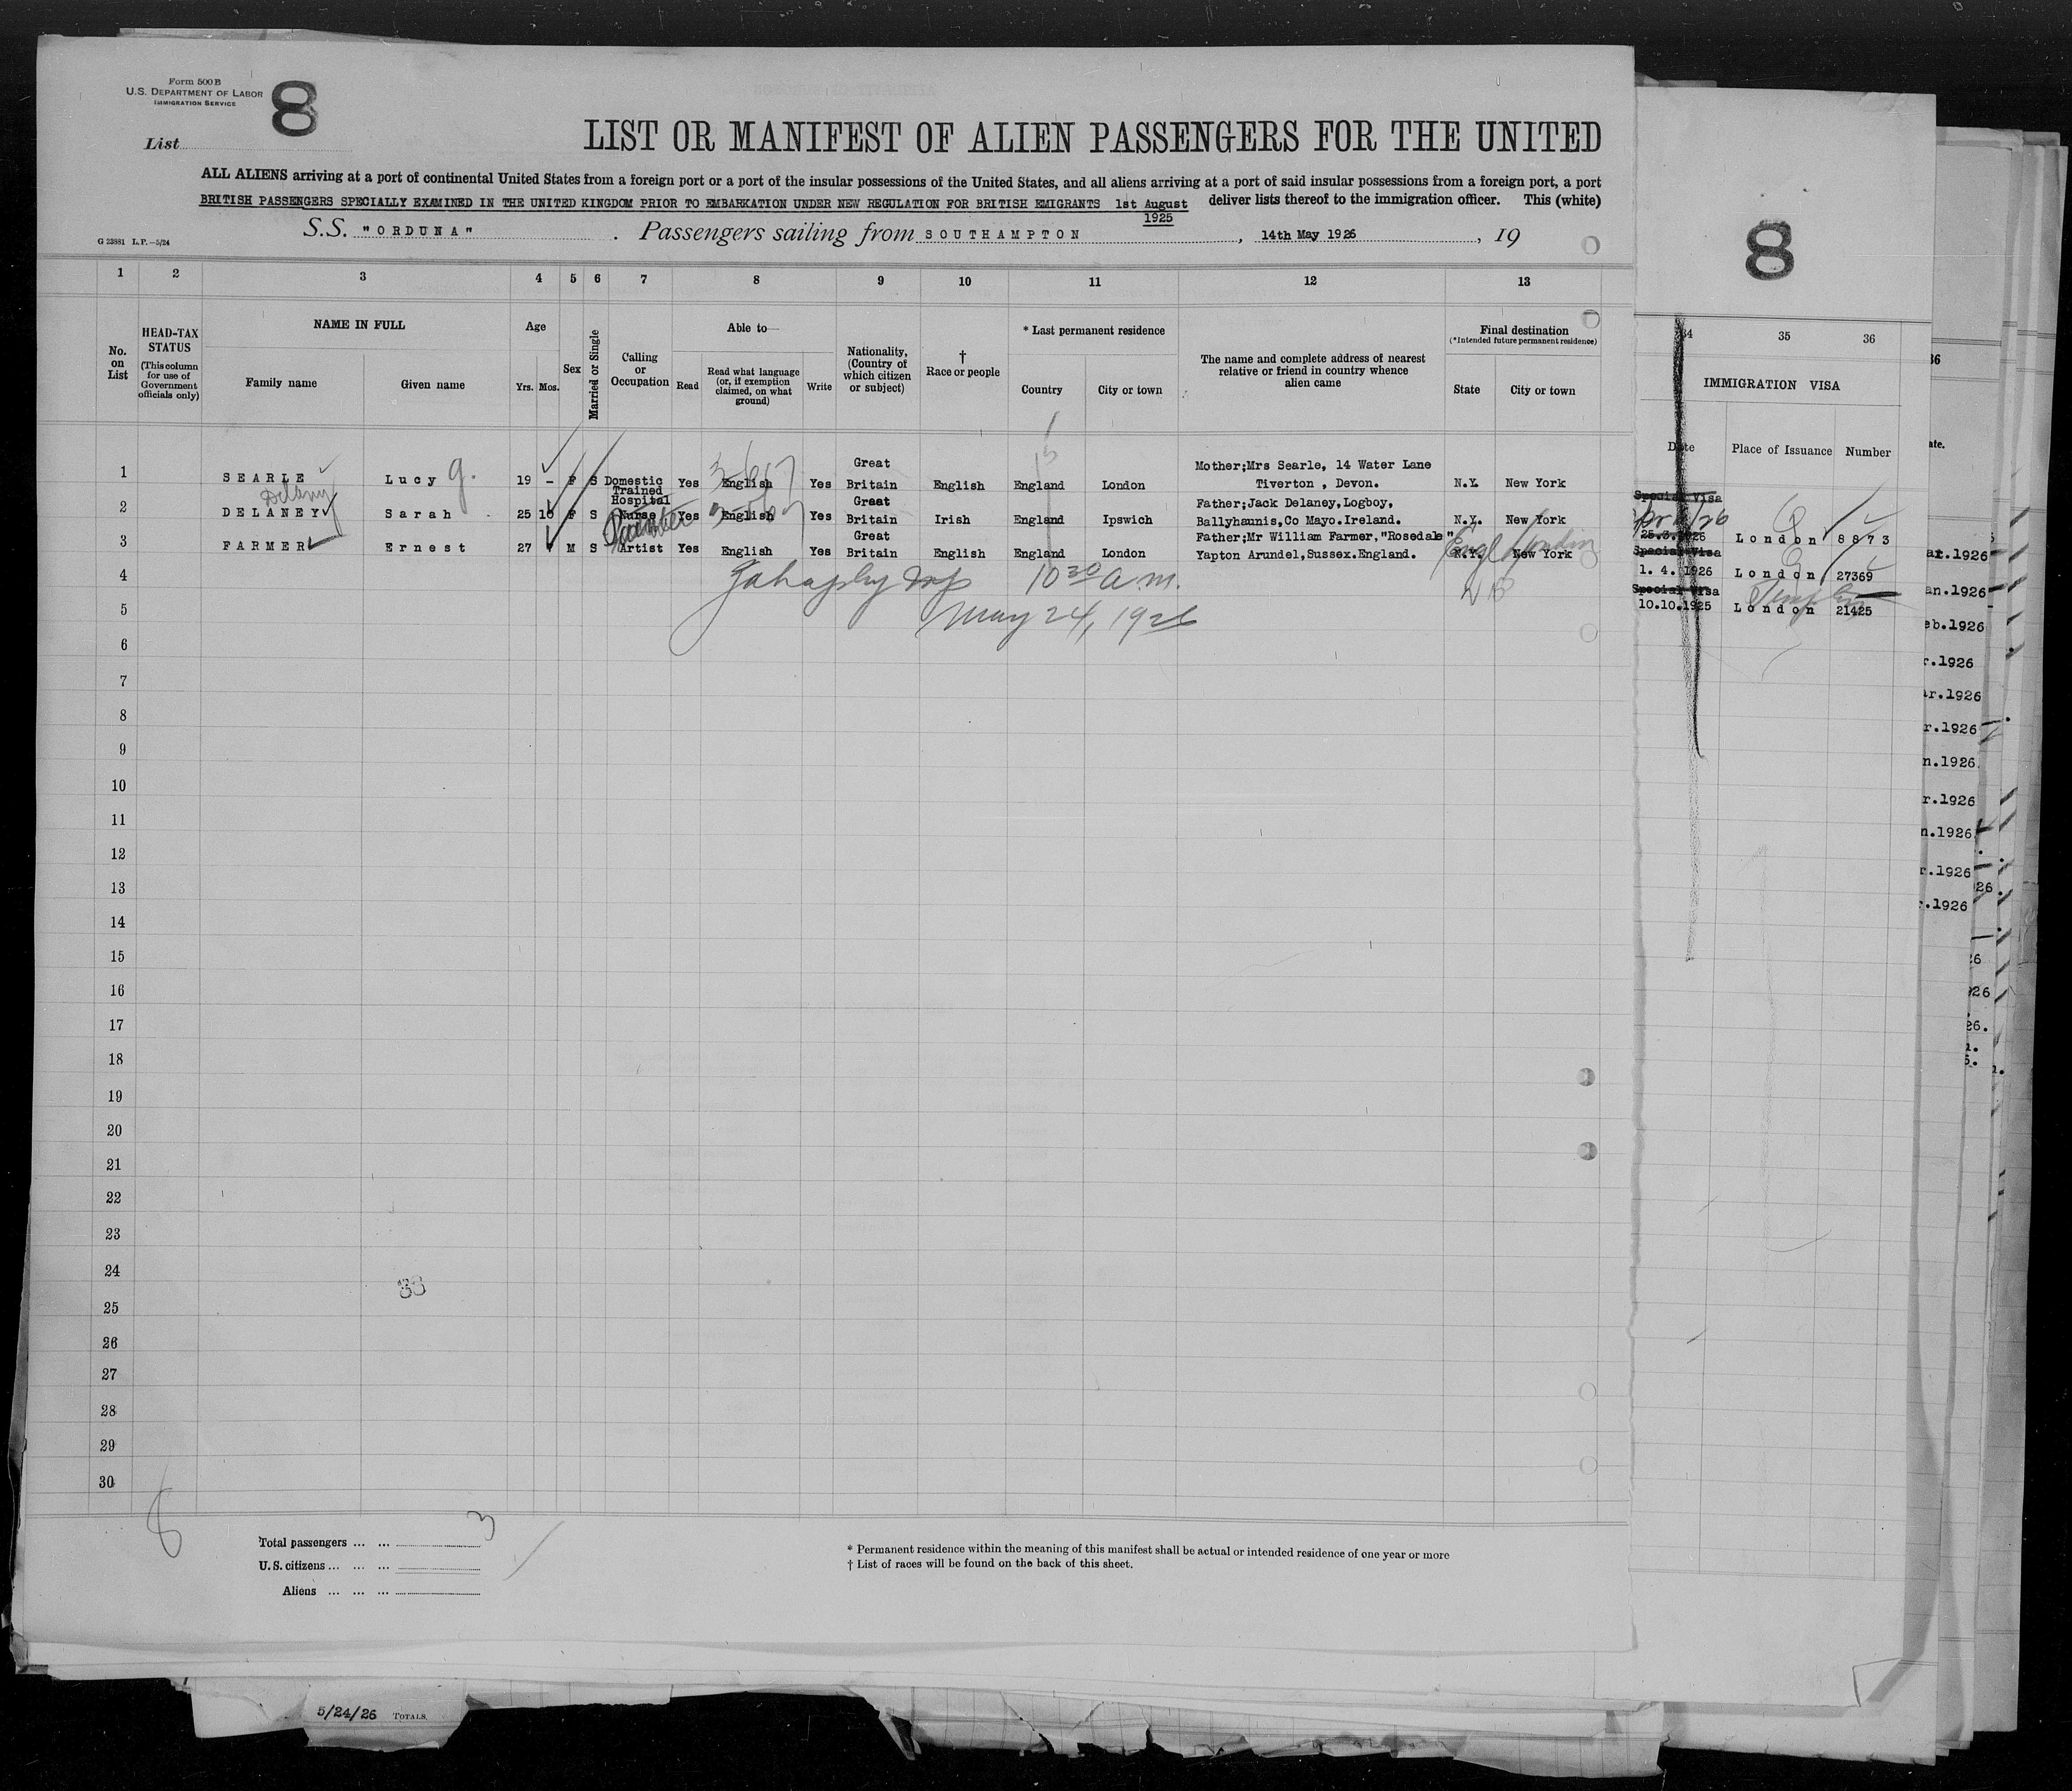 Form 500 B
U.S. DEPARTMENT OF LABOR
IMMIGRATION SERVICE
8
List
LIST OR MANIFEST OF ALIEN PASSENGERS FOR THE UNITED
ALL ALIENS arriving at a port of continental United States from a foreign port or a port of the insular possessions of the United States, and all aliens arriving at a port of said insular possessions from a foreign port, a port
BRITISH PASSENGERS SPECIALLY EXAMINED IN THE UNITED KINGDOM PRIOR TO EMBARKATION UNDER NEW REGULATION FOR BRITISH EMIGRANTS 1st August 1925 deliver lists thereof to the immigration officer. This (white)
G 23881 L.P.—5/24
S.S. "ORDUNA" . Passengers sailing from SOUTHAMPTON , 14th May 1926 , 19
1 2 3 4 5 6 7 8 9 10 11 12 13
No. on List
HEAD-TAX STATUS
(This column for use of Government officials only)
NAME IN FULL
Family name Given name
Age
Yrs. Mos.
Sex
Married or Single
Calling or Occupation
Able to—
Read
Read what language (or, if exemption claimed, on what ground)
Write
Nationality, (Country of which citizen or subject)
† Race or people
* Last permanent residence
Country City or town
The name and complete address of nearest relative or friend in country whence alien came
Final destination
(*Intended future permanent residence)
State City or town
1 SEARLE Lucy G. 19 - F S Domestic Yes English Yes Great Britain English England London Mother;Mrs Searle, 14 Water Lane Tiverton , Devon. N.Y. New York
Delany
2 DELANEY Sarah 25 10 F S Trained Hospital Nurse Yes English Yes Great Britain Irish England Ipswich Father;Jack Delaney,Logboy, Ballyhaunis,Co Mayo.Ireland. N.Y. New York
3 FARMER Ernest 27 M S Artist Yes English Yes Great Britain English England London Father;Mr William Farmer,"Rosedale" Yapton Arundel,Sussex.England. N.Y. New York
Engl London
4
10 30 a.m.
5
May 24, 1926
6
7
8
9
10
11
12
13
14
15
16
17
18
19
20
21
22
23
24
25
26
27
28
29
30
8
Total passengers ... ... 3
U.S. citizens ... ... ...
Aliens ... ... ...
* Permanent residence within the meaning of this manifest shall be actual or intended residence of one year or more
† List of races will be found on the back of this sheet.
5/24/26 TOTALS.
8
34 35 36
IMMIGRATION VISA
Date Place of Issuance Number
Special Visa
25.3.1926 London 8873
Special Visa
1. 4. 1926 London 27369
Special Visa
10.10.1925 London 21425
36
ate.
ar.1926
an.1926
eb.1926
r.1926
ar.1926
r.1926
n.1926
r.1926
n.1926
r.1926
r.1926